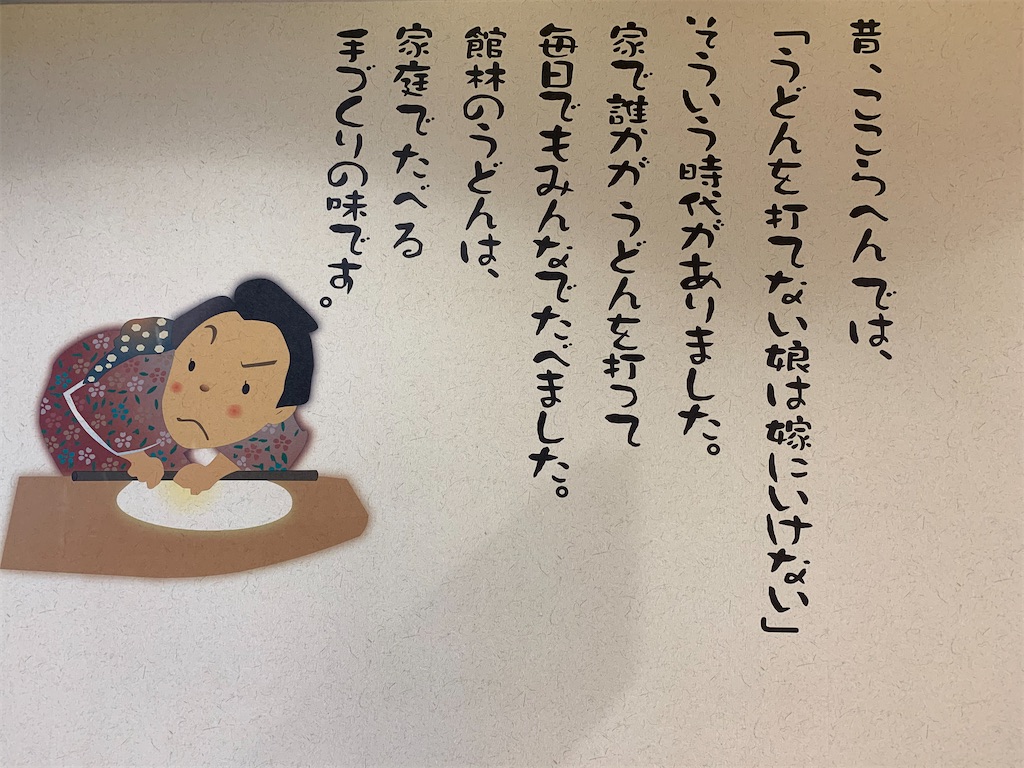 昔、ここらへんでは、
「うどんを打てない娘は嫁にいけない」
そういう時代がありました。
家で誰かがうどんを打って
毎日でもみんなでたべました。
館林のうどんは、
家庭でたべる
手づくりの味です。